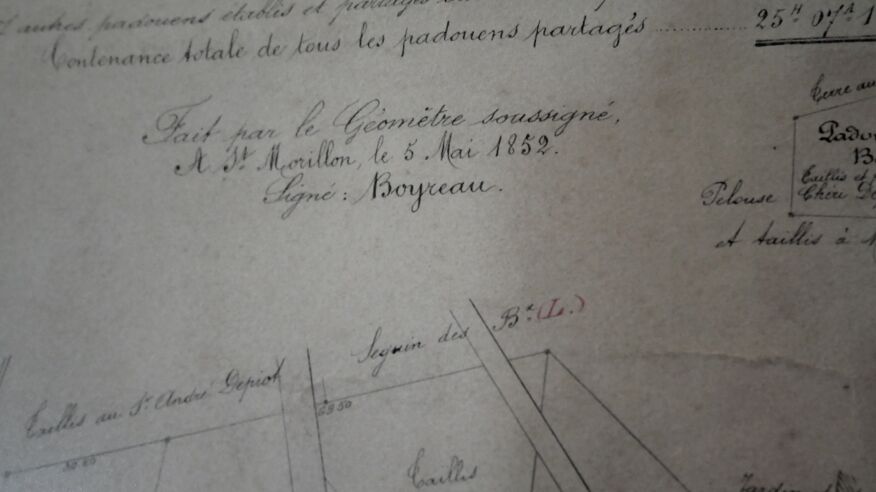 autres padouens établis et partagés
Contenance totale de tous les padouens partagés ........... 25ᴴ 07ᴬ 1
Fait par le Géomètre soussigné,
A St Morillon, le 5 Mai 1852.
Signé : Boyreau.
Terre au
Pado
B
Taillis et
Pelouse
Chéri De
et taillis à
Seguin des Bx (L.)
Taillis au Sr André Depiot
63 50
30.60
Taillis